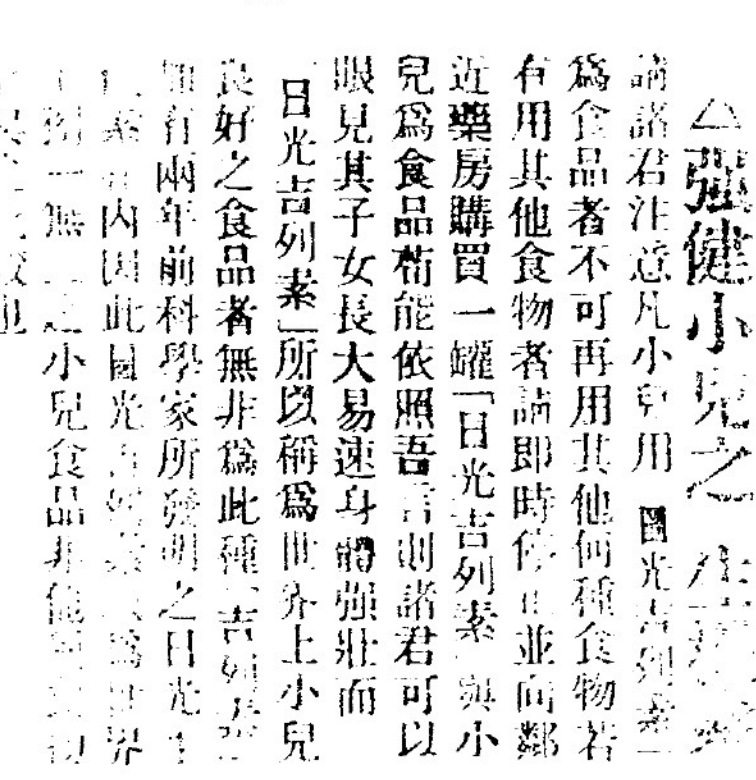 △强健小兒之
請諸君注意凡小兒用 圖光吉列素
爲食品者不可再用其他何種食物若
有用其他食物者請即時停止並向鄰
近藥房購買一罐「日光吉列素」與小
兒爲食品茍能依照吾言則諸君可以
眼見其子女長大易速身體强壯而
「日光吉列素」所以稱爲世界上小兒
良好之食品者無非爲此種「吉列素」
如有兩年前科學家所發明之日光
素 內因此圖光吉列素 爲世界
獨一無二之小兒食品非他
也